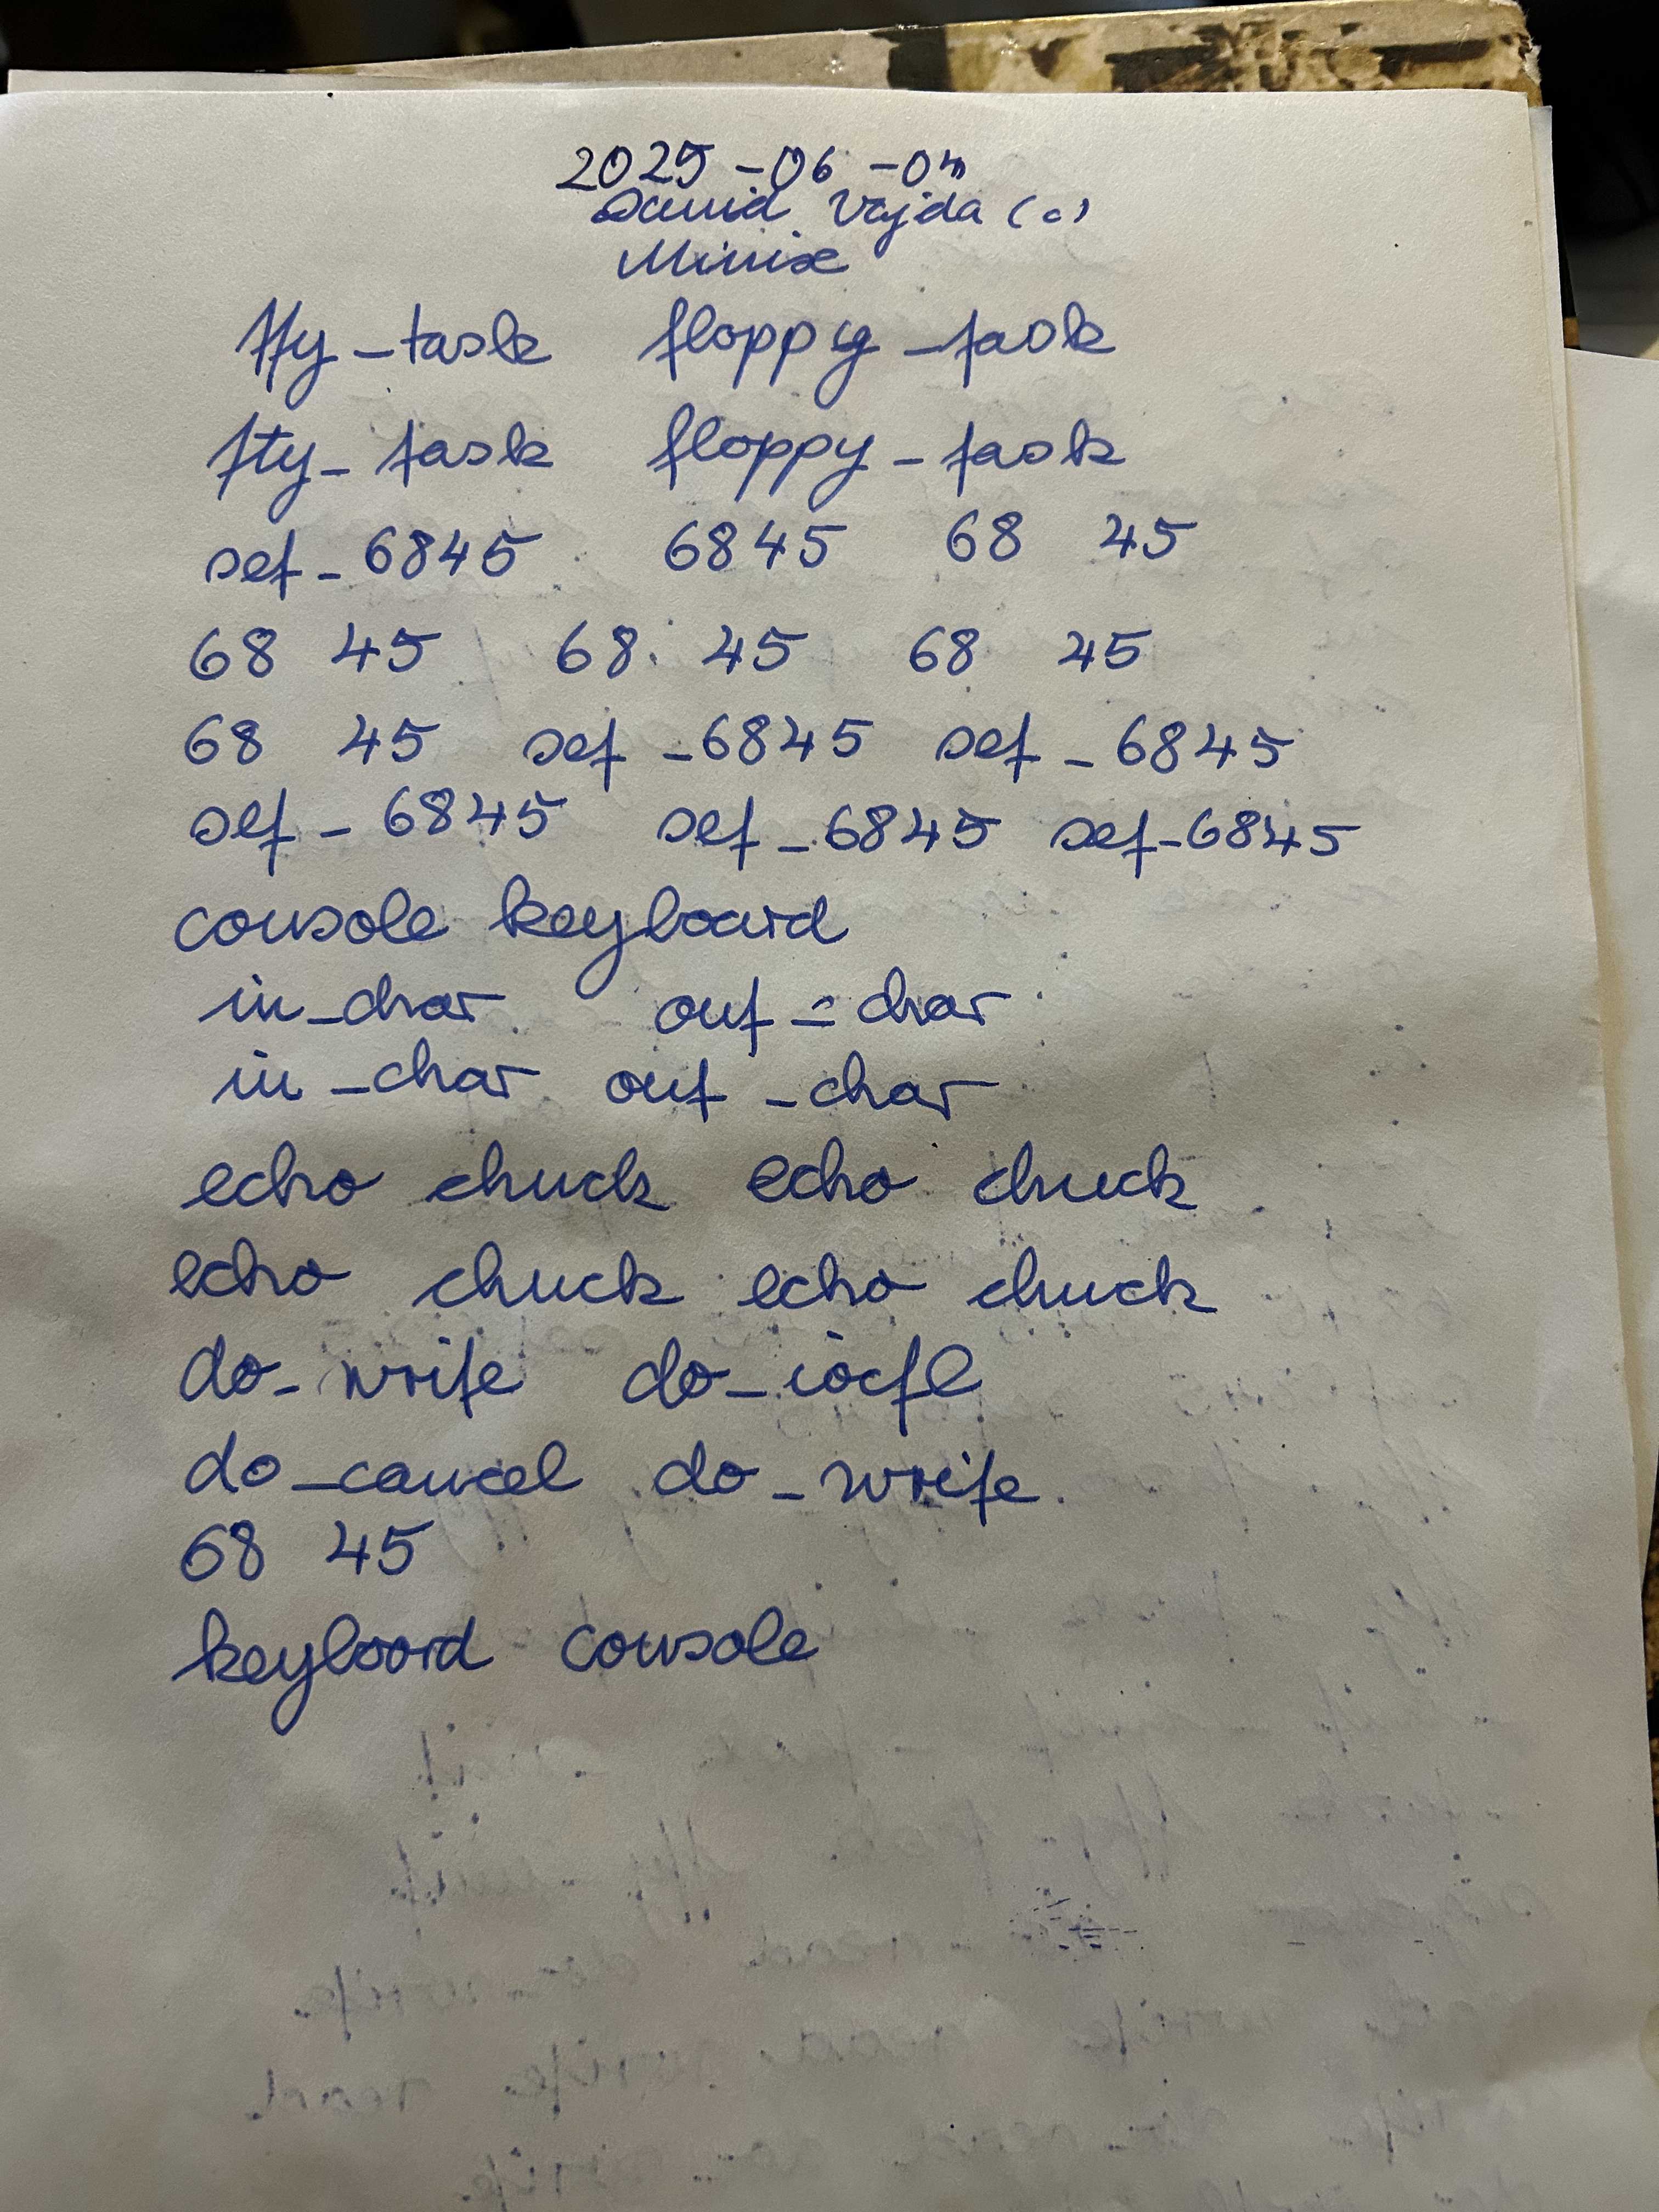 2025-06-04
David Vajda (c)
Minix
tty_task floppy_task
tty_task floppy_task
set_6845 6845 68 45
68 45 68 45 68 45
68 45 set_6845 set_6845
set_6845 set_6845 set_6845
console keyboard
in_char out_char
in_char out_char
echo chuck echo chuck
echo chuck echo chuck
do_write do_ioctl
do_cancel do_write
68 45
keyboard console